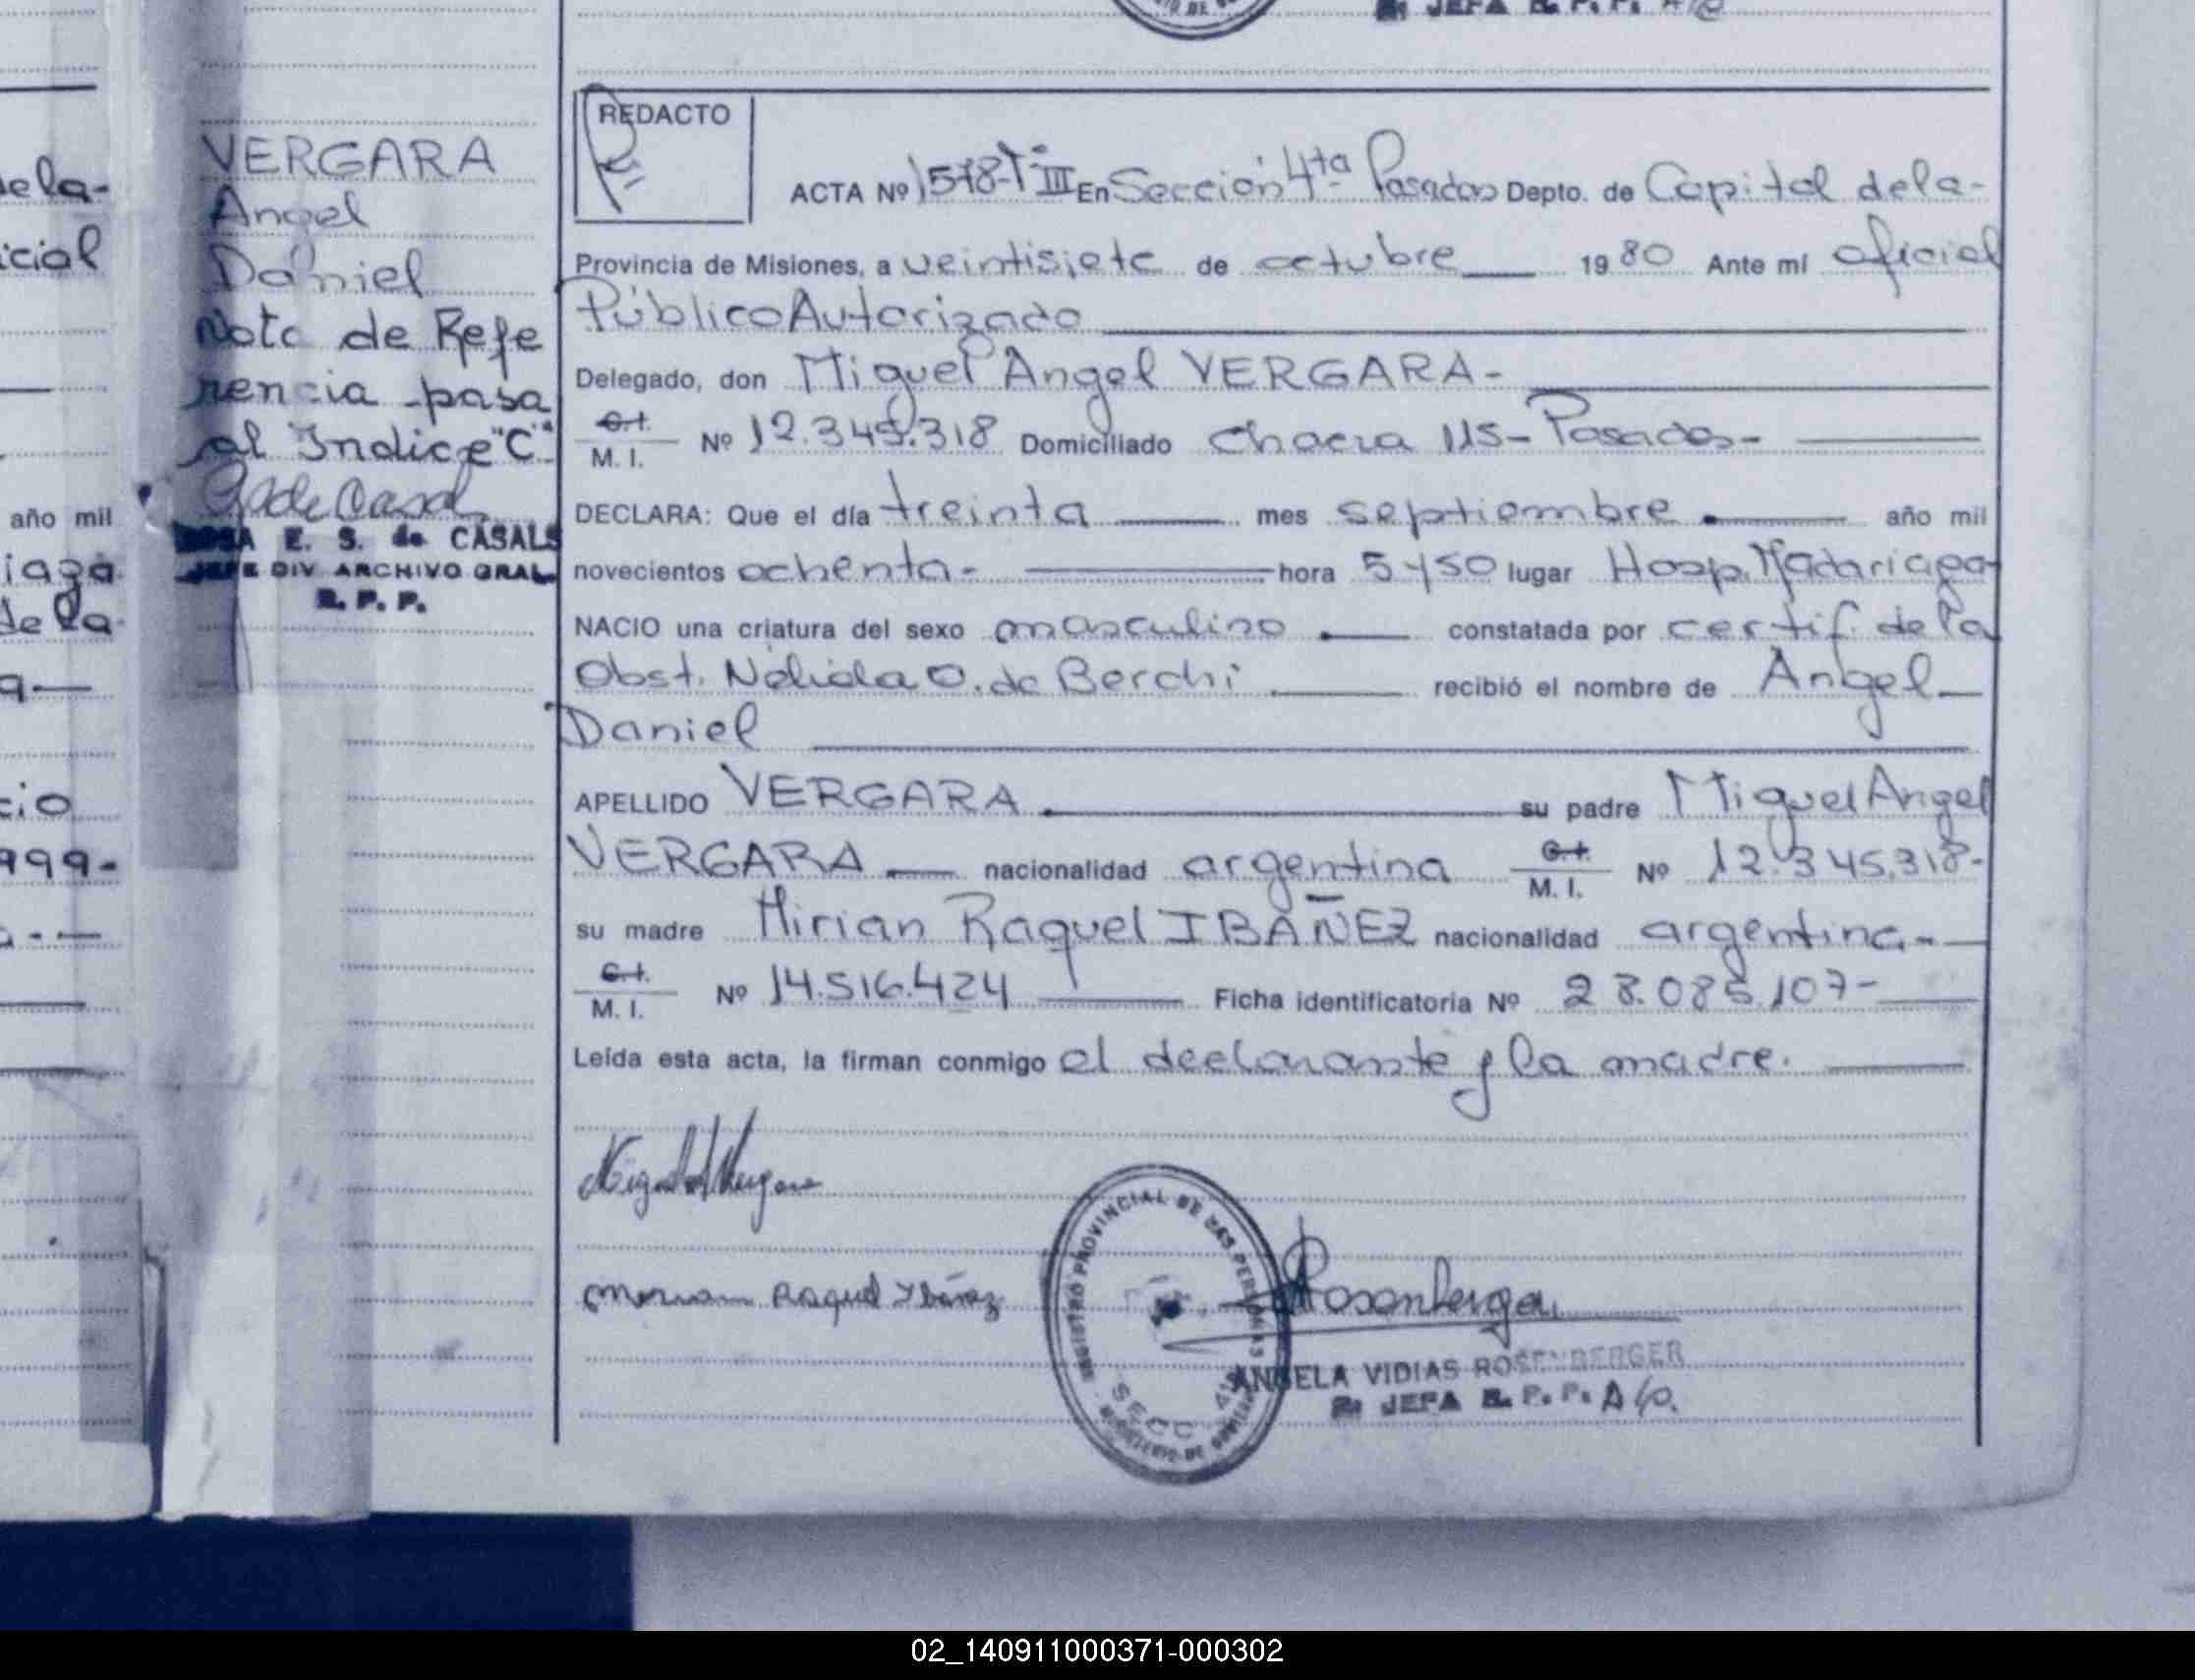 2: JEFA R. P. P. A/C
ela-
icial
año mil
iaga
de la
a
cio
999-
VERGARA
Angel
Daniel
Nota de Refe
rencia pasa
al Indice "C"
E. S. de CASALS
JEFE DIV ARCHIVO GRAL.
R. P. P.
REDACTO
ACTA Nº 1578-T:III En Sección 4ta Posadas Depto. de Capital de la-
Provincia de Misiones, a veintisiete de octubre 19 80 Ante mí oficial
Público Autorizado
Delegado, don Miguel Angel VERGARA-
C.I.
M. I. Nº 12.345.318 Domiciliado Chacra 115- Posadas-
DECLARA: Que el día treinta mes septiembre año mil
novecientos ochenta- hora 5 y 50 lugar Hosp. Madariaga-
NACIO una criatura del sexo masculino constatada por certif. de la
Obst. Nélida O. de Berchi recibió el nombre de Angel
Daniel
APELLIDO VERGARA su padre Miguel Angel
VERGARA nacionalidad argentina C.I. M. I. Nº 12.345.318-
su madre Mirian Raquel IBAÑEZ nacionalidad argentina-
C.I.
M. I. Nº 14.516.424 Ficha identificatoria Nº 28.085.107-
Leída esta acta, la firman conmigo el declarante y la madre.
Raquel Ybáñez
REGISTRO PROVINCIAL DE LAS PERSONAS
SECC. 4ta
MINISTERIO DE GOBIERNO
Rosenberger
ANGELA VIDIAS ROSENBERGER
2: JEFA R. P. P. A/C.
02_140911000371-000302